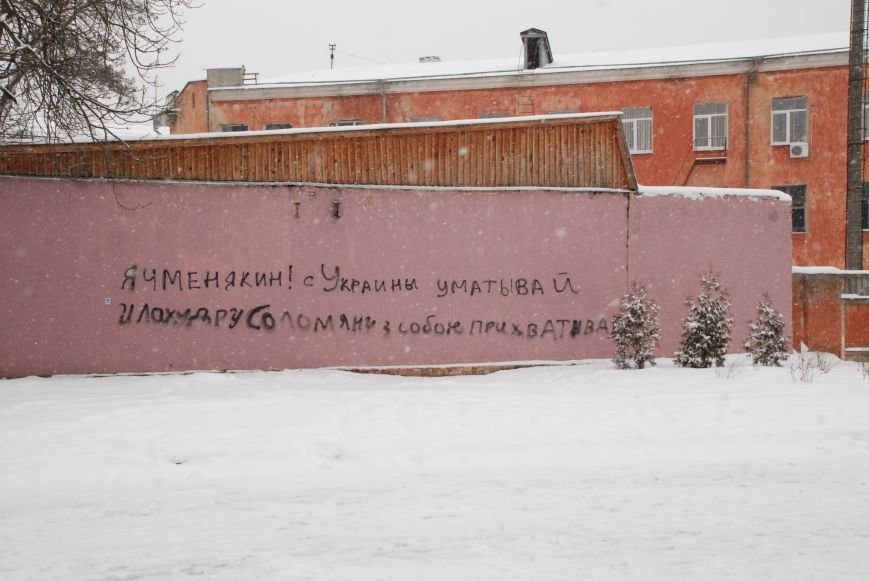 ЯЧМЕНЯКИН! с Украины уматывай
и лохудру Соломяну з собою прихватива